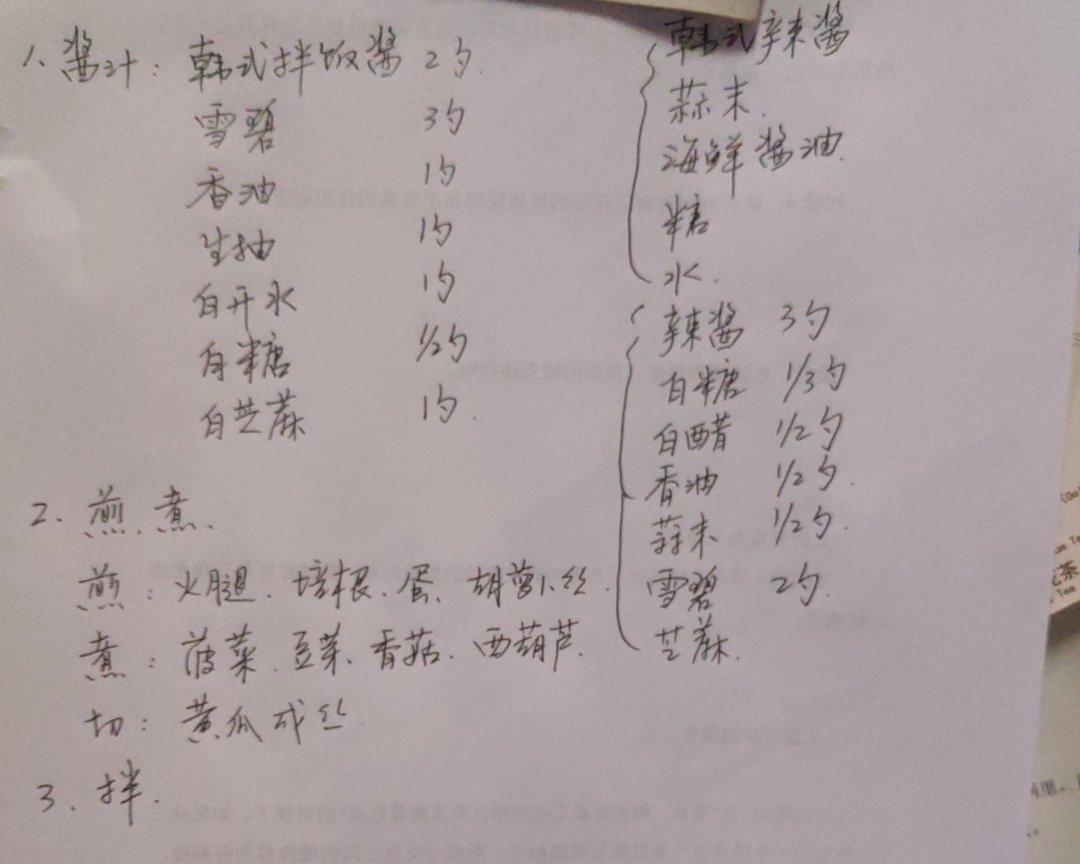 1、酱汁：韩式拌饭酱 2勺.
雪碧 3勺
香油 1勺
生抽 1勺
白开水 1勺
白糖 1/2勺
白芝麻 1勺.
韩式辣酱
蒜末.
海鲜酱油.
糖
水.
辣酱 3勺
白糖 1/3勺
白醋 1/2勺
香油 1/2勺.
蒜末 1/2勺.
雪碧 2勺.
芝麻.
2. 煎、煮、
煎：火腿、培根、蛋、胡萝卜丝.
煮：菠菜、豆芽、香菇、西葫芦.
切：黄瓜成丝
3、拌.
茶